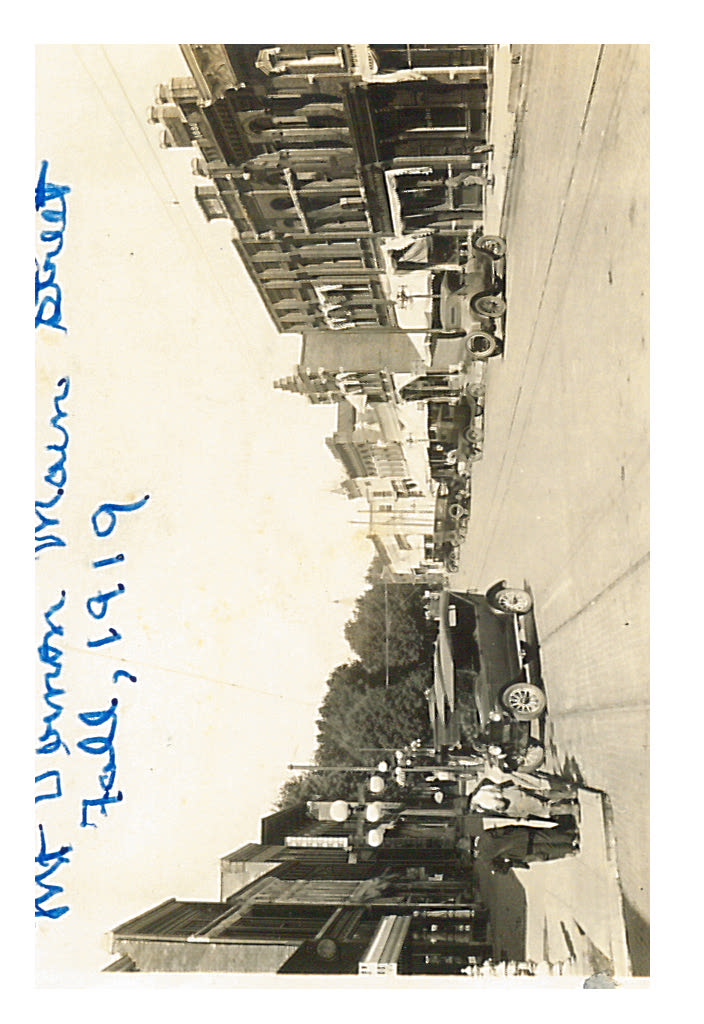 Mt Vernon Main Street
Fall, 1919